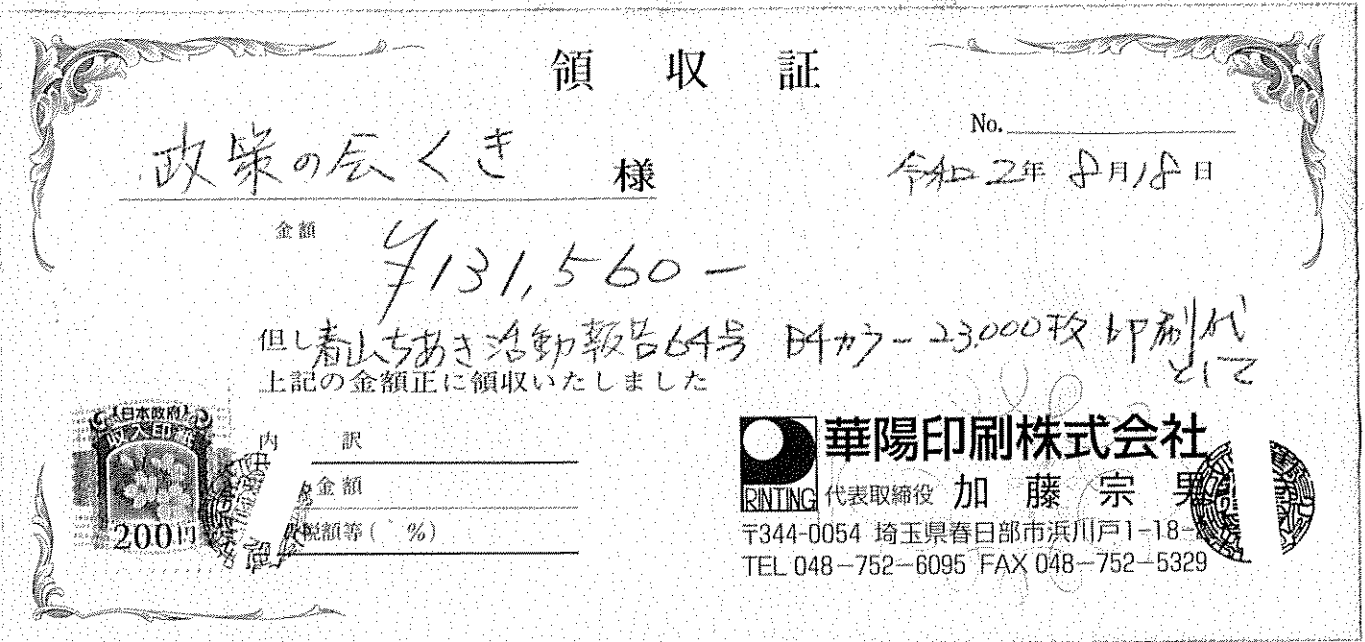 領 収 証
No.
政策の会くき 様
令和2年 8月18日
金額
¥131,560-
但し春山ちあき活動報告64号 B4カラー23,000枚 印刷代
として
上記の金額正に領収いたしました
日本政府
収入印紙
200円
内 訳
金額
税額等( %)
RINTING
華陽印刷株式会社
代表取締役 加藤宗男
〒344-0054 埼玉県春日部市浜川戸1-18-
TEL 048-752-6095 FAX 048-752-5329